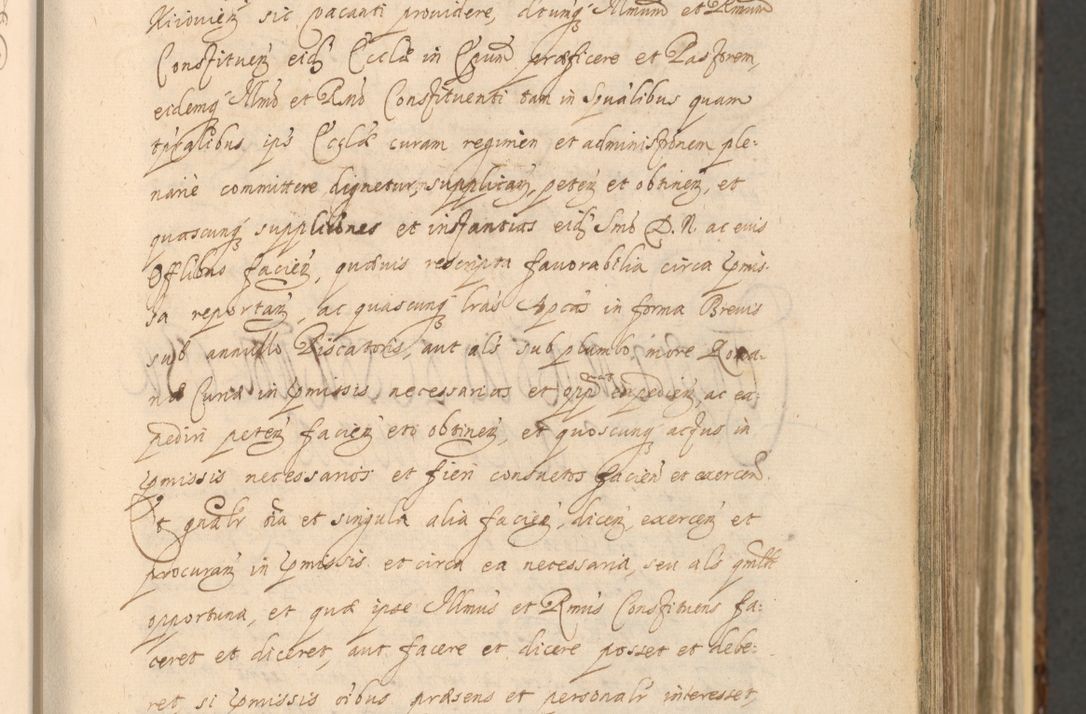 Kiiovieñ sic vacanti providere, dtumq Illmum et Rmum
Constituen eid Ecclae in Epum præficere et Pastorem,
eidemq Illmo et Rmo Constituenti tam in spualibus quam
tpralibus ips Ecclæ curam regimen et administronem ple:
nariè committere dignetur, supplican, peten et obtinen, et
quascunq supplictiones et instantias eid Smo D. N. ac eius
Offlibus facien, quævis rescripta favorabilia circa pmis
sa reportan, ac quascunq lras Aplcas in forma Brevis
sub annullo Piscatoris, aut als sub plumbo, more Roma:
næ Curiæ in pmissis necessarias et opp expedien, ac ex
pediri peten facien et obtinen, et quoscunq actus in
pmissis necessarios et fieri consuetos facien et exercen.
Et gnalr oia et singula alia facien, dicen, exercen et
procuran in pmissis et circa ea necessaria, seu als qmlt
opportuna, et quæ ipse Illmus et Rmus Constituens fa:
ceret et diceret, aut facere et dicere posset et debe:
ret si pmissis oibus præsens et personalr interesset,